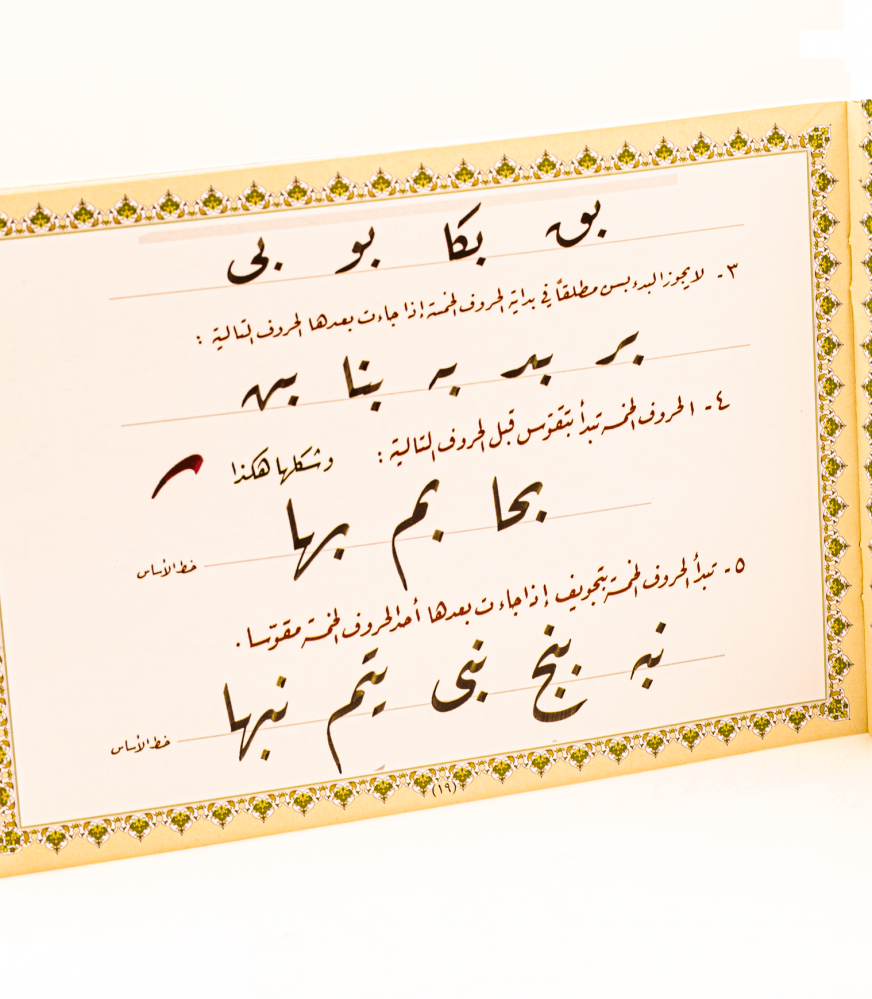 بق بكا بو بى
٣- لا يجوز البدء بسن مطلقاً في بداية الحروف الخمسة إذا جاءت بعدها الحروف التالية :
بر بد به بنا بهـ
٤- الحروف الخمسة تبدأ بتقوّس قبل الحروف التالية : وشكلها هكذا
بحا بم بها
خط الأساس
٥- تبدأ الحروف الخمسة بتجويف إذا جاءت بعدها أحد الحروف الخمسة مقوّسا .
نبه بنج نبى يتم نبها
خط الأساس
(١٩)